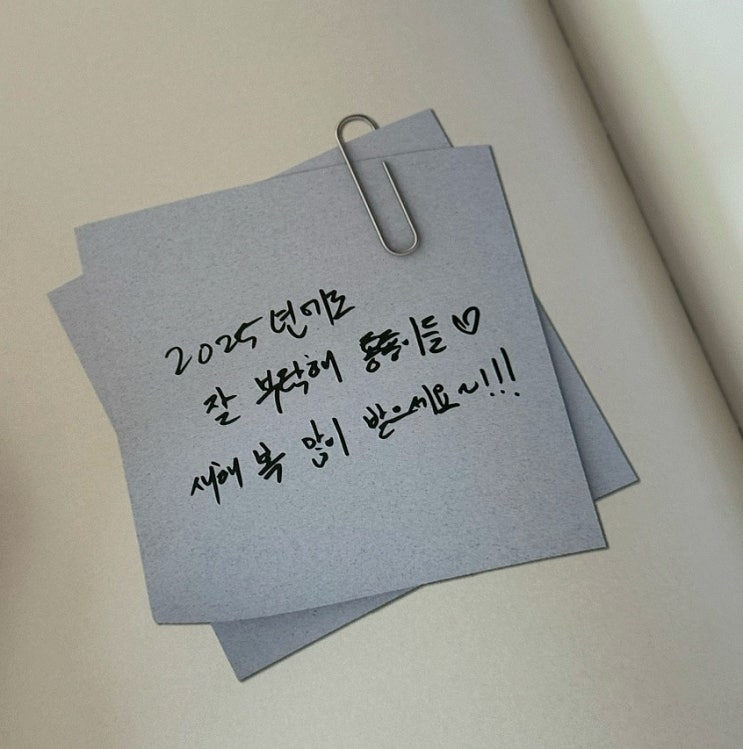 2025년에도
잘 부탁해 용뚱이들♡
새해 복 많이 받으세요~!!!